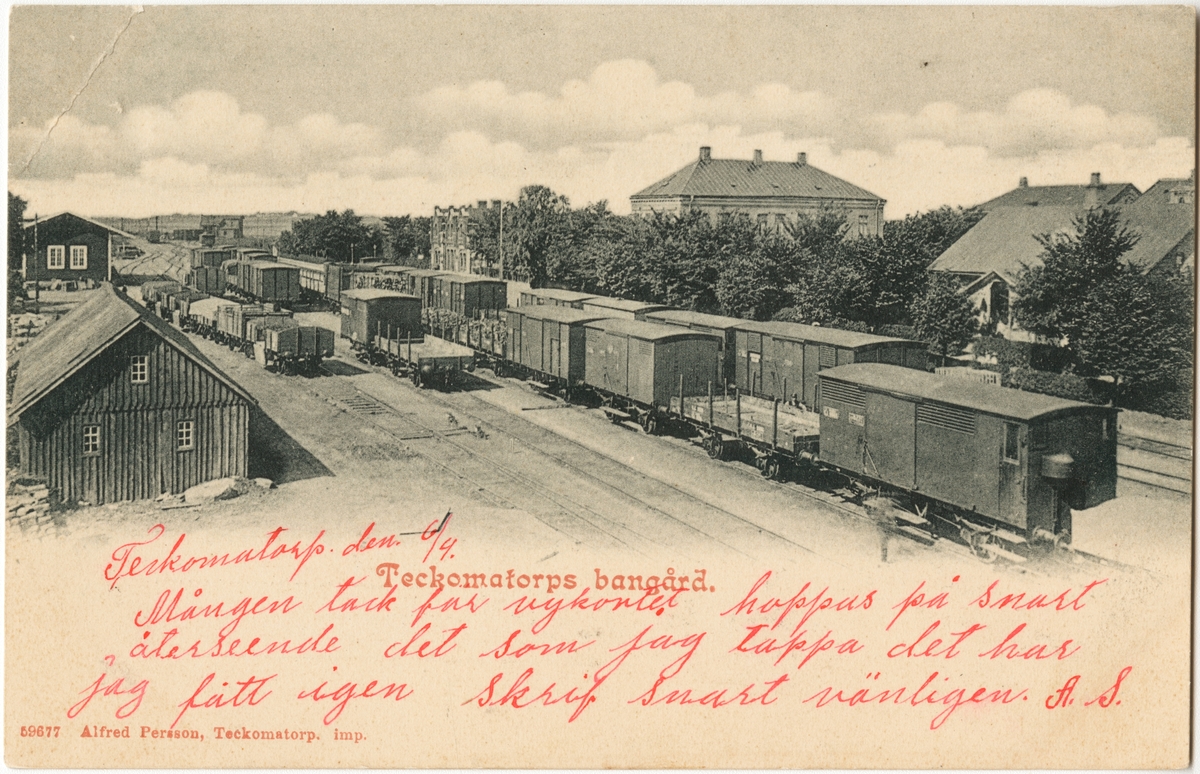 Teckomatorp. den. 6/4.
Teckomatorps bangård.
Mången tack for vykortet hoppas på snart
återseende det som jag tappa det har
jag fått igen skrif snart vänligen. A. S.
59677 Alfred Persson, Teckomatorp. imp.